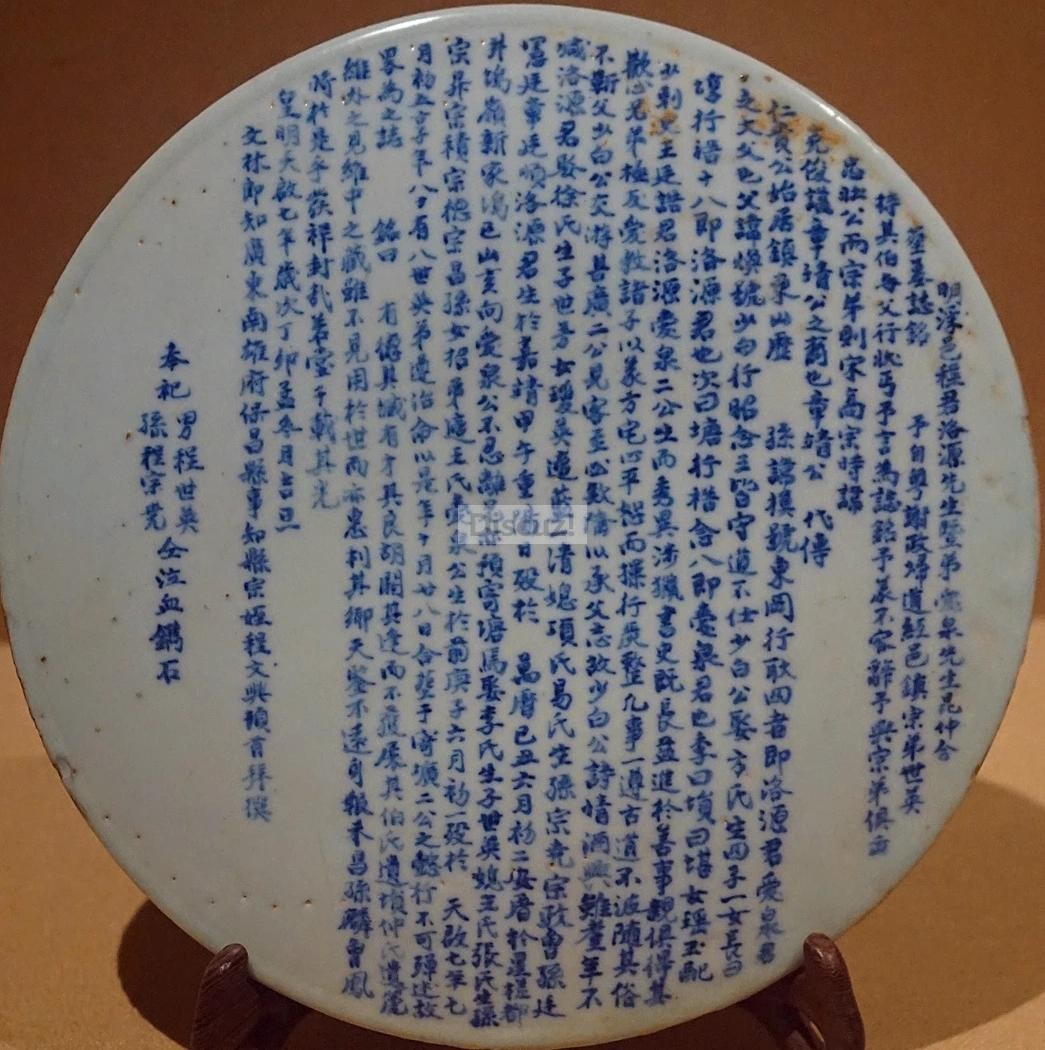 明浮邑程君洛源先生暨弟愛泉先生昆仲合
葬墓誌銘 予自粵謝政歸道經邑鎮宗弟世英
持其伯與父行狀丐予言為誌銘予義不容辭予與宗弟俱面
忠壯公而宗弟則宋高宗時諱
克俊諡章靖公之裔也章靖公 代傳
仁賓公始居鎮東山歷 孫諱模號東岡行耿四者即洛源君愛泉君
之大父也父諱煥號少白行昭念三皆守遵不仕少白公娶方氏生四子一女長曰
埻行浩十八即洛源君也次曰塘行楷念八即愛泉君也季曰塤曰堪女瑶玉配
少刺史王廷諮君洛源愛泉二公生而秀異涉獵書史既長益進於善事親俱得其
歡心兄弟極友愛教諸子以義方宅心平恕而操行嚴整凡事一遵古道不波隨其俗
不靳父少白公交游甚廣二公見客至必歡洽以承父志故少白公詩情酒興雖耋年不
減洛源君娶徐氏生子世芳女瓊英適蔡一清媳項氏易氏生孫宗堯宗啟曾孫廷
憲廷章廷順洛源君生於嘉靖甲午重陽日歿於 萬曆己丑六月初二安厝於星程都
井塢嶺新家灣巳山亥向愛泉公不忍離 預寄塘馬娶李氏生子世英媳王氏張氏生孫
宗昇宗積宗德宗昌孫女招弟適王氏愛泉公生於前庚子六月初一歿於 天啟七年七
月初五 子年八十有八世英弟遵治命以是年十月廿八日合塟于寄壙二公之懿行不可殫述故
畧為之誌 銘曰 有德其城有才其良胡闇其逢而不獲展其伯氏遺塤仲氏遺篪
維外之見維中之藏雖不見用於世而亦惠利其鄉天鑒不遠自報禾昌孫麟曾鳳
時於是乎發祥封孔若堂千載其光
皇明天啟七年歲次丁卯孟冬月吉旦
文林郎知廣東南雄府保昌縣事知縣宗姪程文興頓首拜撰
奉祀 男程世英
孫程宗堯 仝泣血鐫石
Discuz!